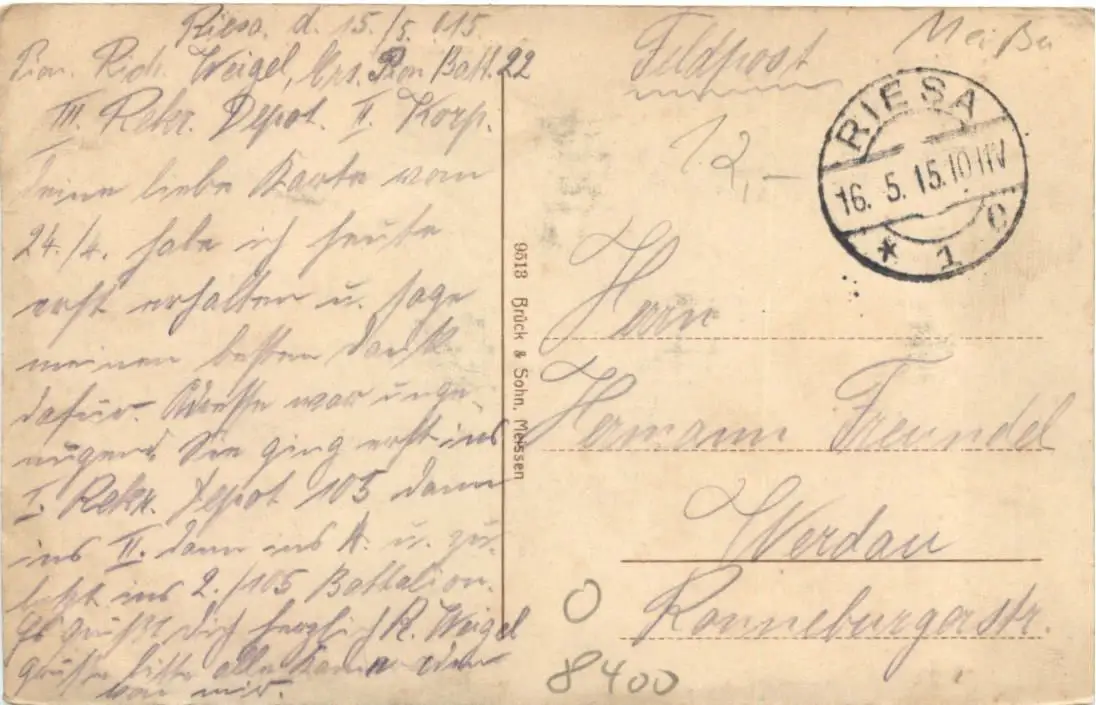 Riesa. d. 15./5. 015.
Pion. Rich. Weigel, Ers. Pion Batl. 22
III. Rekr. Depot. II. Korp.
Deine liebe Karte vom
24./4. habe ich heute
erst erhalten u. sage
meinen besten Dank
dafür. Adresse war unge
nügend. Sie ging erst ins
I. Rekr. Depot 105 dann
ins II. dann ins A. u. zu
letzt ins 2./105 Battalion.
Es grüßt Dich herzlich R. Weigel
Grüße bitte alle Kameraden
von mir.
9513 Brück & Sohn, Meissen
Feldpost
Meißn
12,-
RIESA
16. 5. 15. 10-11V
* 1 c
Herrn
Hermann Freundel
Werdau
Ronneburgerstr.
0
8400